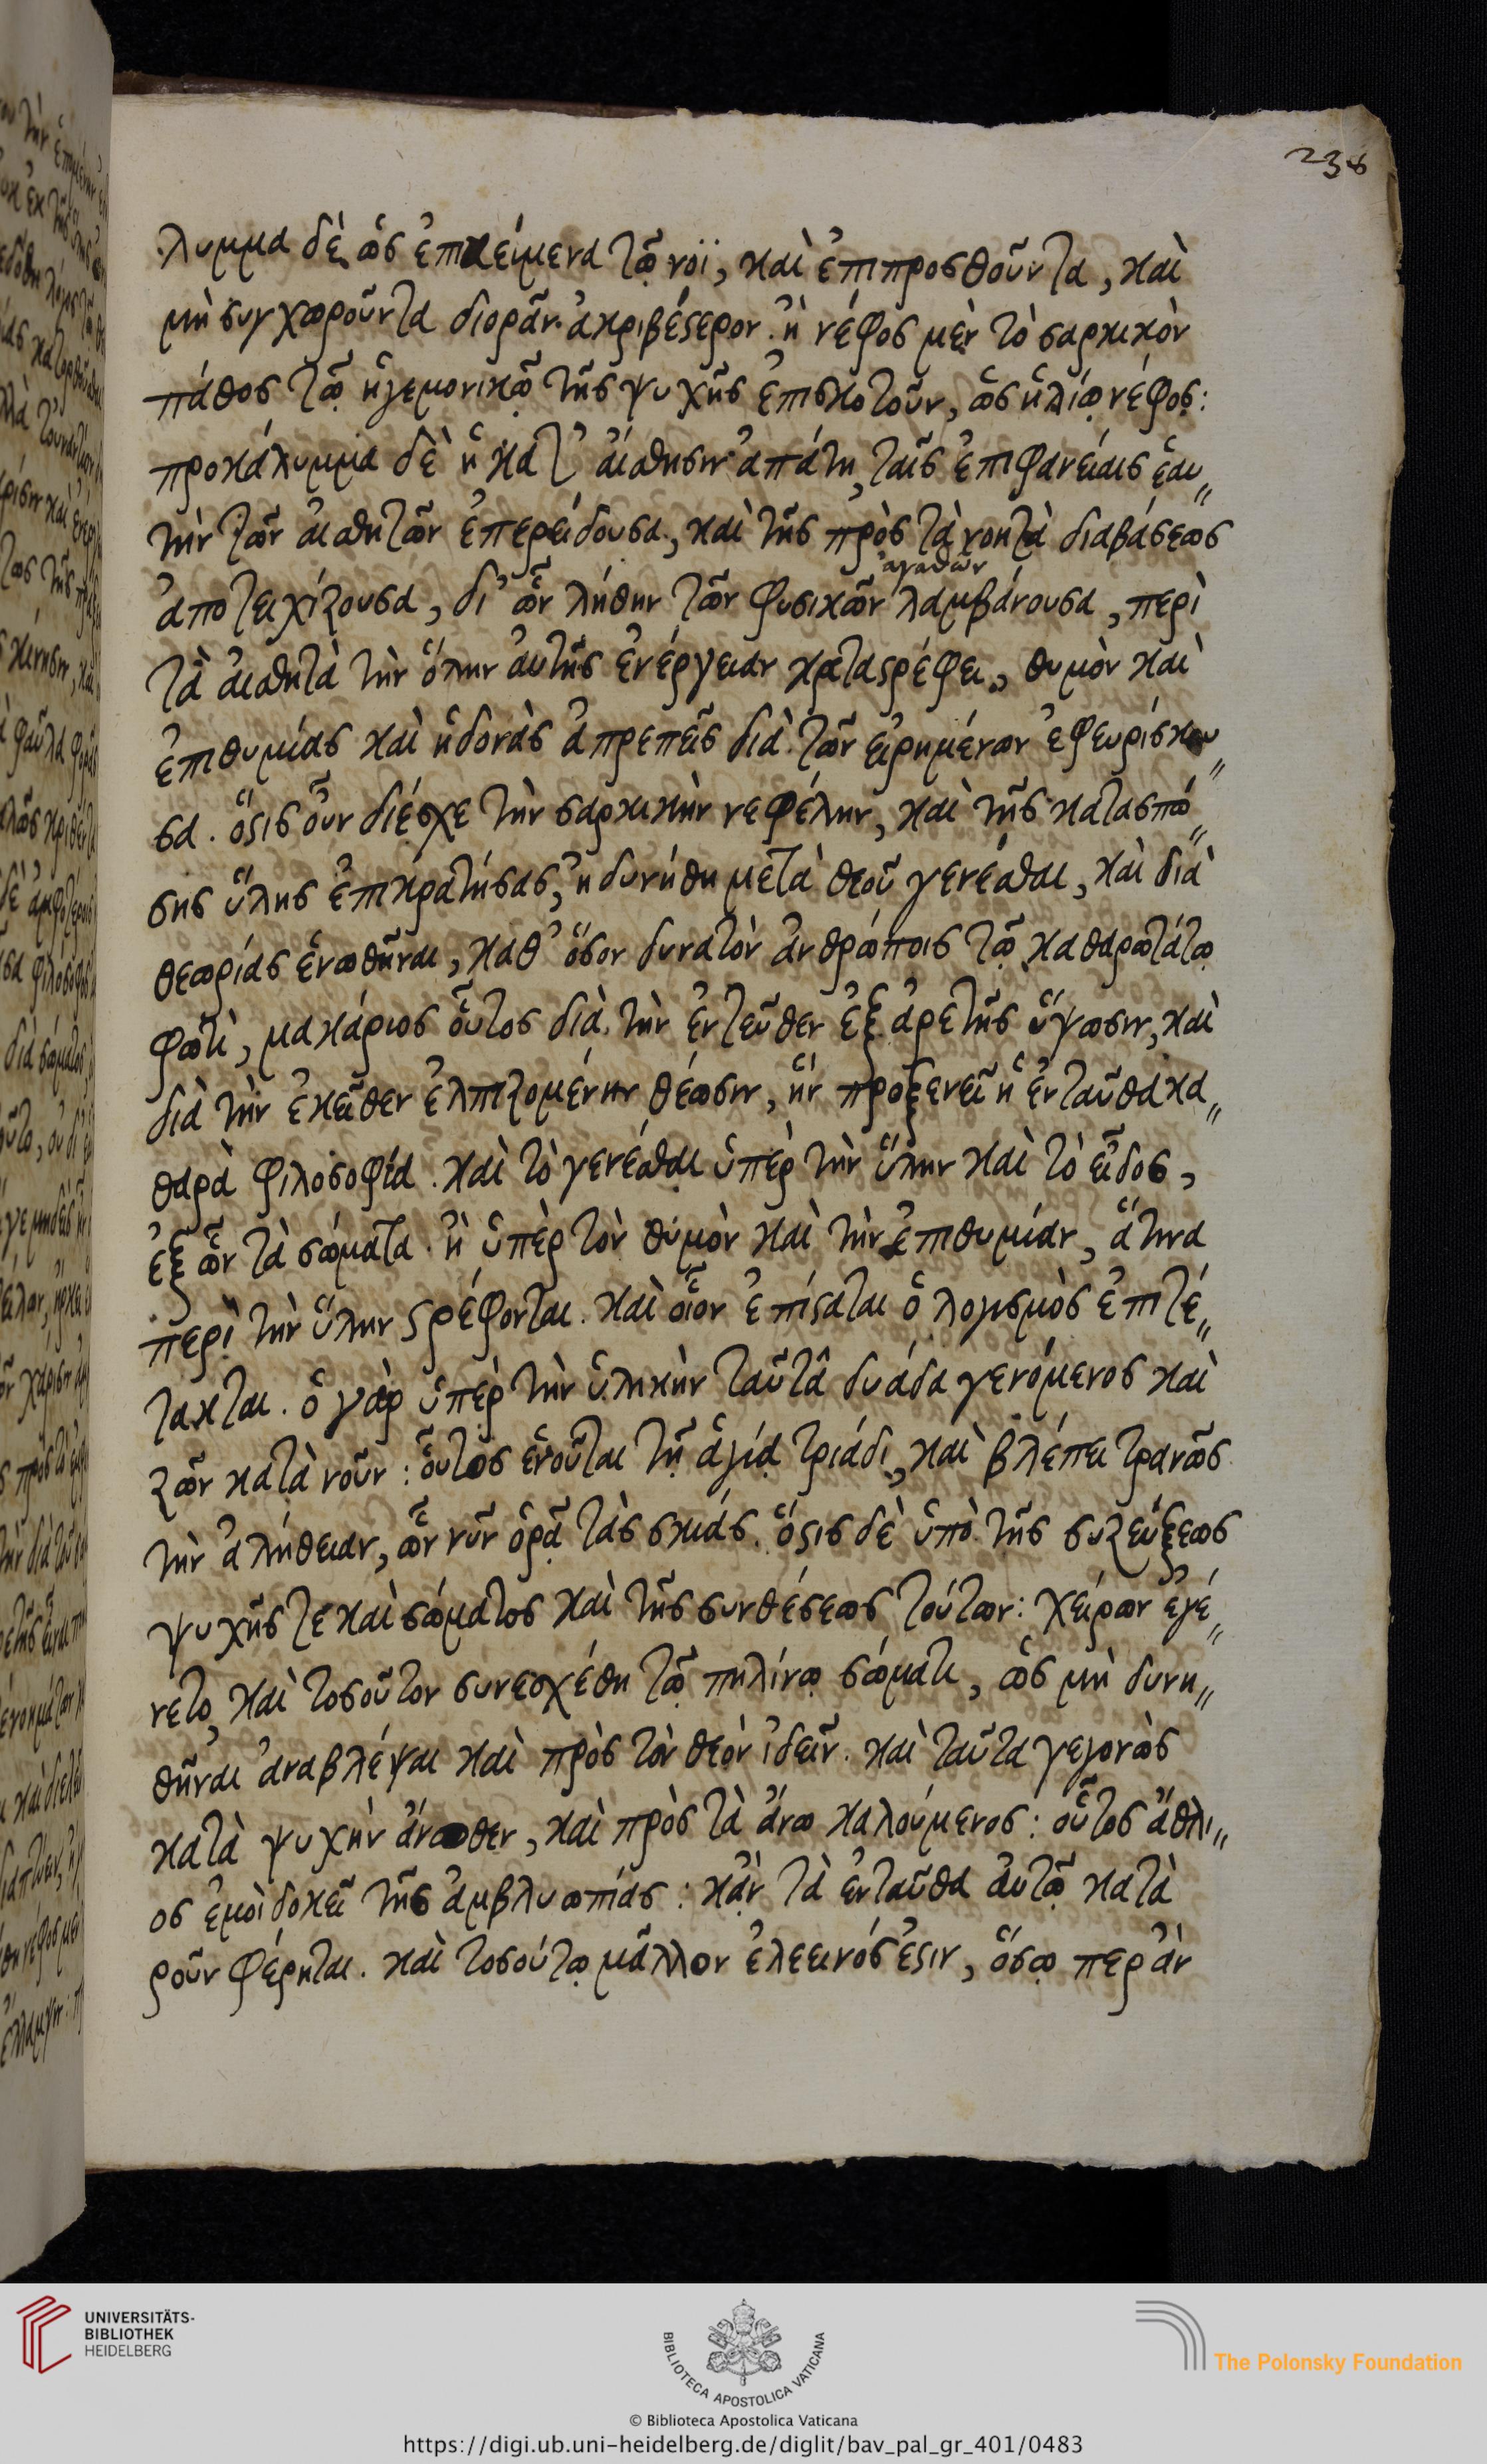 238
λυμμα δὲ, ὡς ἐπικείμενα τῷ νοῒ, καὶ ἐπιπροσθοῦντα, καὶ
μὴ συγχωροῦντα διορᾶν ἀκριβέστερον. ἢ νέφος μὲν τὸ σαρκικὸν
πάθος τῷ ἡγεμονικῷ τῆς ψυχῆς ἐπισκοτοῦν, ὡς ἡλίῳ νέφος:
προκάλυμμα δὲ ἡ κατ' αἴσθησιν ἀπάτη, ταῖς ἐπιφανείαις ἑαυ„
τὴν τῶν αἰσθητῶν ἐπερείδουσα, καὶ τῆς πρὸς τὰ νοητὰ διαβάσεως
ἀγαθῶν
ἀποτειχίζουσα, δι' ὧν λήθην τῶν φυσικῶν λαμβάνουσα, περὶ
τὰ αἰσθητὰ τὴν ὅλην αὐτῆς ἐνέργειαν καταστρέφει, θυμὸν καὶ
ἐπιθυμίας καὶ ἡδονὰς ἀπρεπεῖς διὰ τῶν εἰρημένων ἐφευρίσκου„
σα. ὅστις οὖν διέσχε τὴν σαρκικὴν νεφέλην, καὶ τῆς κατασπώ„
σης ὕλης ἐπικρατήσας, ἠδυνήθη μετὰ θεοῦ γενέσθαι, καὶ διὰ
θεωρίας ἑνωθῆναι, καθ' ὅσον δυνατὸν ἀνθρώποις τῷ καθαρωτάτῳ
φωτὶ, μακάριος οὗτος διὰ τὴν ἐντεῦθεν ἐξ ἀρετῆς ὕψωσιν, καὶ
διὰ τὴν ἐκεῖθεν ἐλπιζομένην θέωσιν, ἣν προξενεῖ ἡ ἐνταῦθα κα„
θαρὰ φιλοσοφία. καὶ τὸ γενέσθαι ὑπὲρ τὴν ὕλην καὶ τὸ εἶδος,
ἐξ ὧν τὰ σώματα. ἢ ὑπὲρ τὸν θυμὸν καὶ τὴν ἐπιθυμίαν, ἅτινα
περὶ τὴν ὕλην στρέφονται. καὶ οἷον ἐπίσταται ὁ λογισμὸς ἐπιτέ„
τακται. ὁ γὰρ ὑπὲρ τὴν ὑλικὴν ταῦτα δυάδα γενόμενος καὶ
ζῶν κατὰ νοῦν: οὗτος ἑνοῦται τῇ ἁγίᾳ τριάδι, καὶ βλέπει τρανῶς
τὴν ἀλήθειαν, ὧν νῦν ὁρᾷ τὰς σκιάς. ὅστις δὲ ὑπὸ τῆς συζεύξεως
ψυχῆς τε καὶ σώματος καὶ τῆς συνθέσεως τούτων: χείρων ἐγέ„
νετο, καὶ τοσοῦτον συνεσχέθη τῷ πηλίνῳ σώματι, ὡς μὴ δυνη„
θῆναι ἀναβλέψαι καὶ πρὸς τὸν θεὸν ἰδεῖν. καὶ ταῦτα γεγονὼς
κατὰ ψυχὴν ἄνωθεν, καὶ πρὸς τὰ ἄνω καλούμενος: οὗτος ἄθλι„
ος ἐμοὶ δοκεῖ τῆς ἀμβλυωπίας: κἂν τὰ ἐνταῦθα αὐτῷ κατὰ
ροῦν φέρηται. καὶ τοσούτῳ μᾶλλον ἐλεεινός ἐστιν, ὅσῳ περ ἂν
UNIVERSITÄTS-
BIBLIOTHEK
HEIDELBERG
BIBLIOTECA APOSTOLICA VATICANA
The Polonsky Foundation
© Biblioteca Apostolica Vaticana
https://digi.ub.uni-heidelberg.de/diglit/bav_pal_gr_401/0483